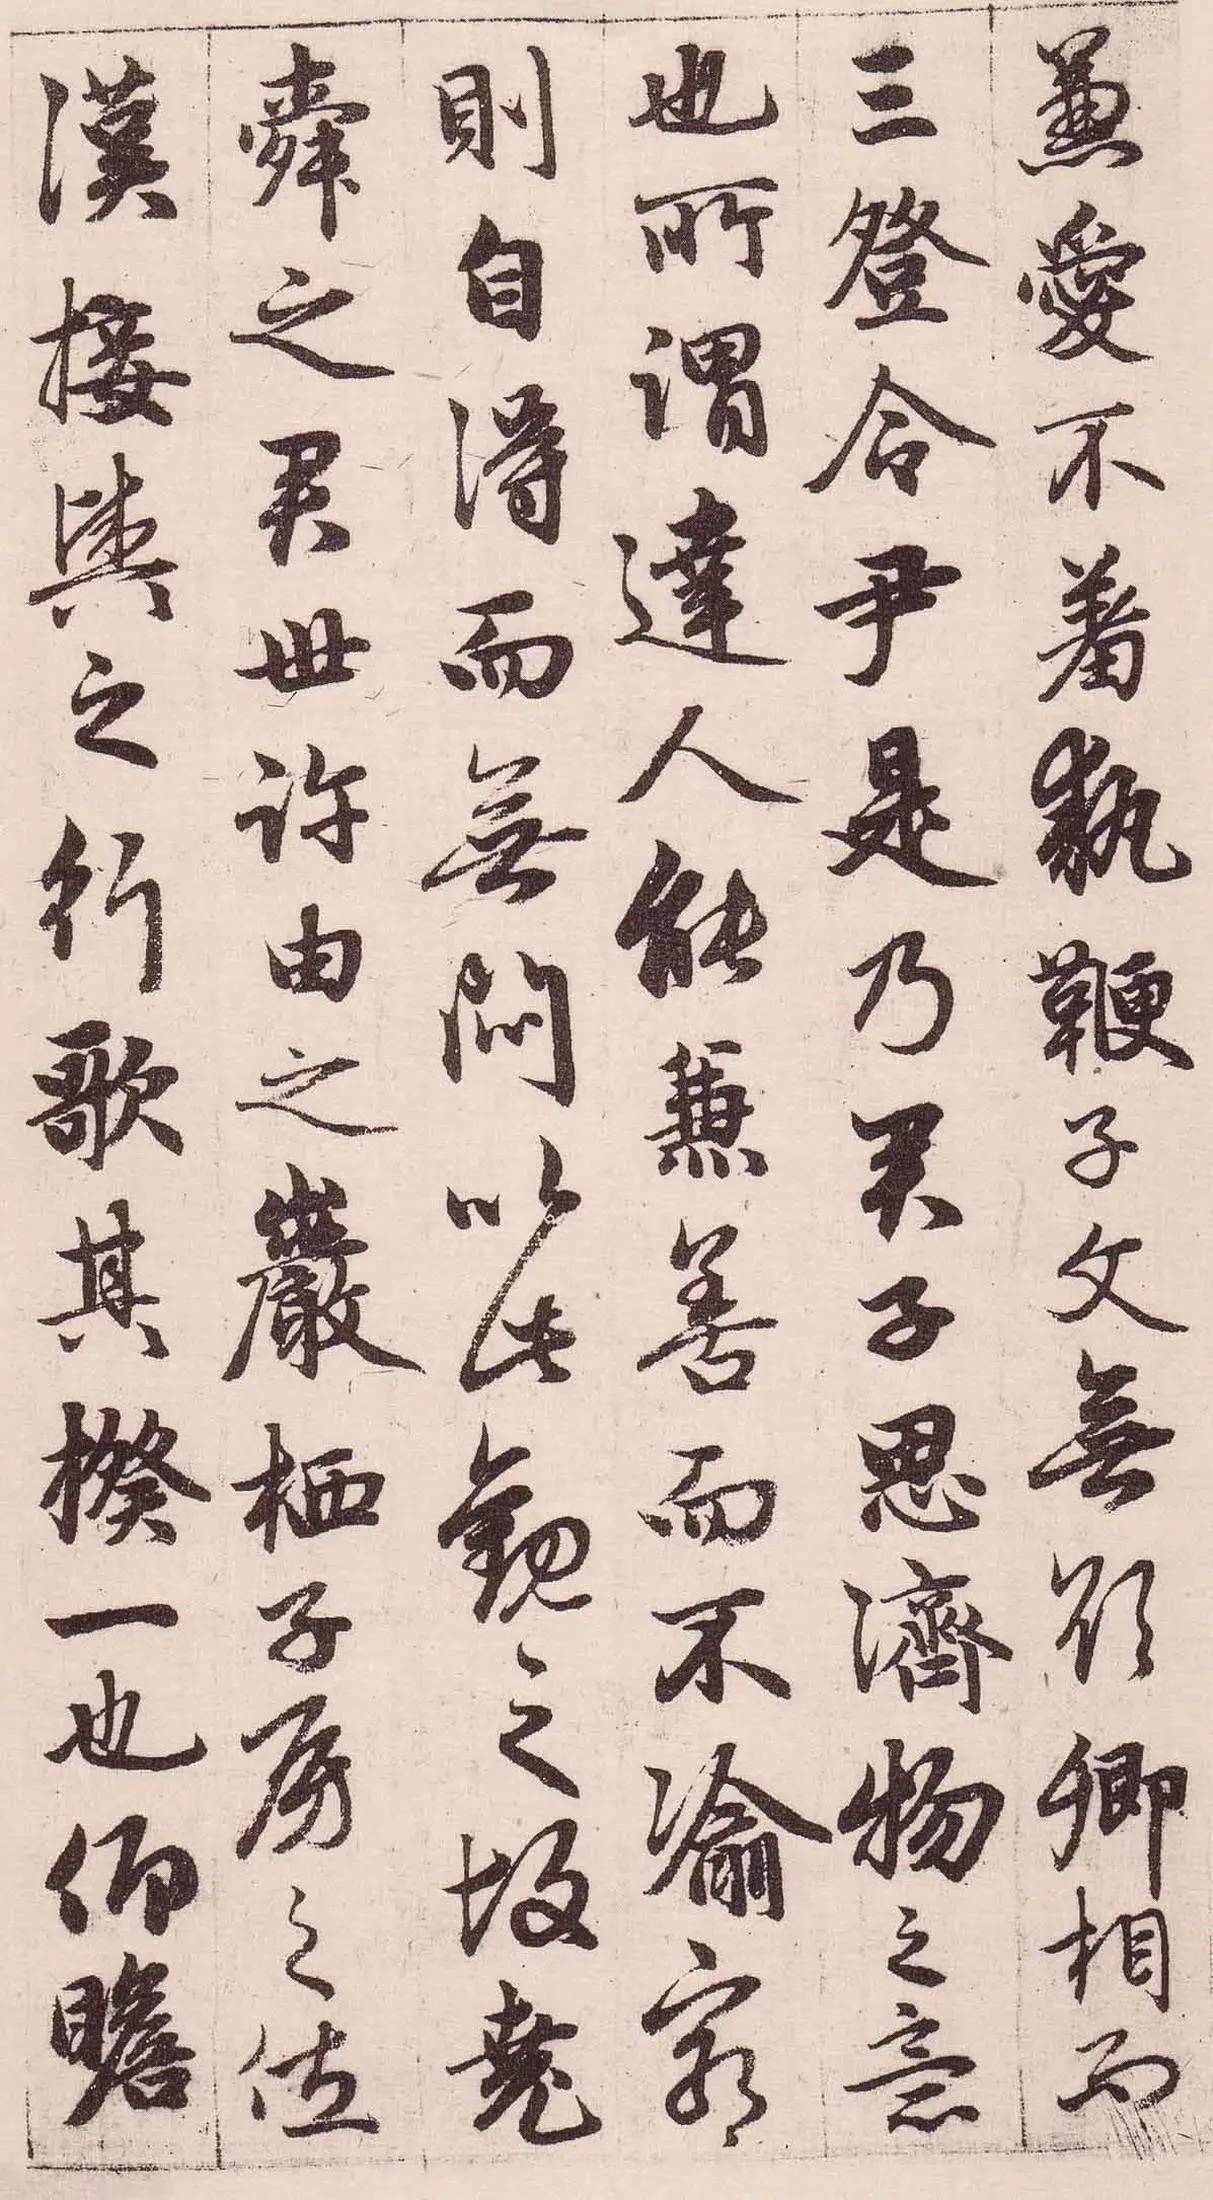 兼愛不著執鞭子文無欲卿相而
三登令尹是乃君子思濟物之意
也所謂達人能兼善而不渝窮
則自得而無悶以此觀之故堯
舜之君世許由之巖栖子房之佐
漢接輿之行歌其揆一也仰瞻